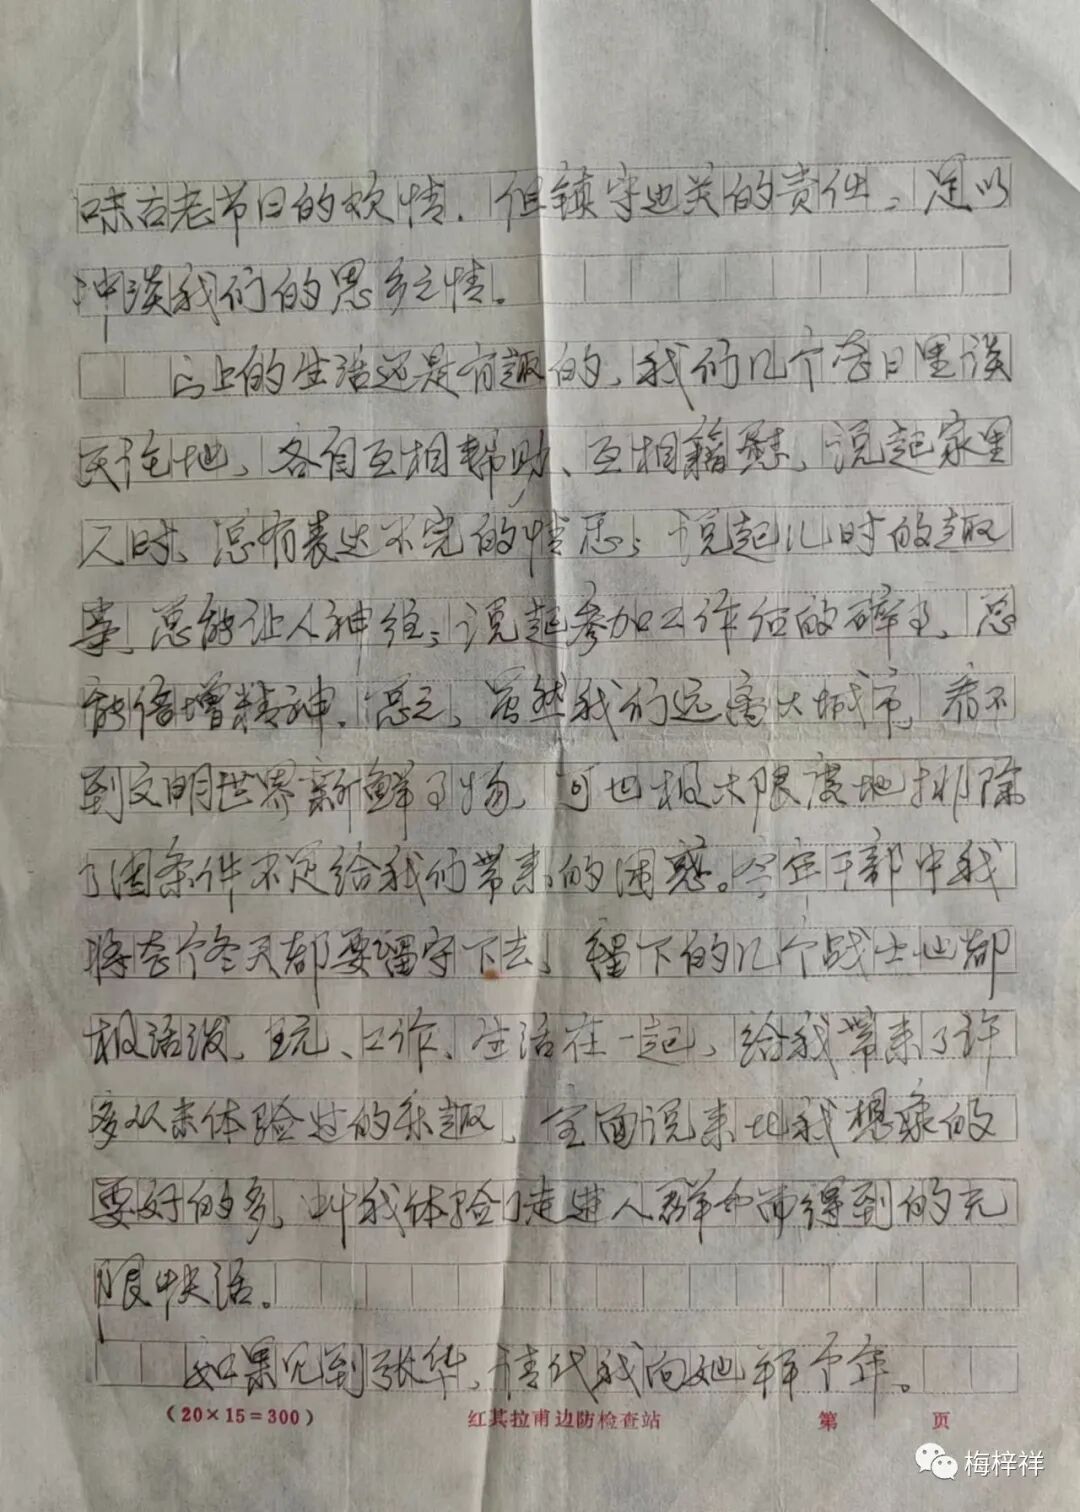 味古老节日的欢情．但镇守边关的责任，足以
冲淡我们的思乡之情。
山上的生活还是有趣的，我们几个每日里谈
天论地，各自互相帮助、互相籍慰，说起家里
人时，总有表达不完的情思；说起儿时的趣
事，总能让人神往；说起参加工作后的碎事，总
能倍增精神．总之，虽然我们远离大城市，看不
到文明世界新鲜事物，可也极大限度地排除
了因条件不足给我们带来的困惑。今年干部中我
将整个冬天都要留守下去，留下的几个战士也都
极活泼，玩、工作、生活在一起，给我带来了许
多从未体验过的乐趣，全面说来比我想象的
要好的多，叫我体验了走进人群中而得到的无
限快活。
如果见到张华，请代我向她拜个年。
(20×15=300) 红其拉甫边防检查站 第 页
梅梓祥